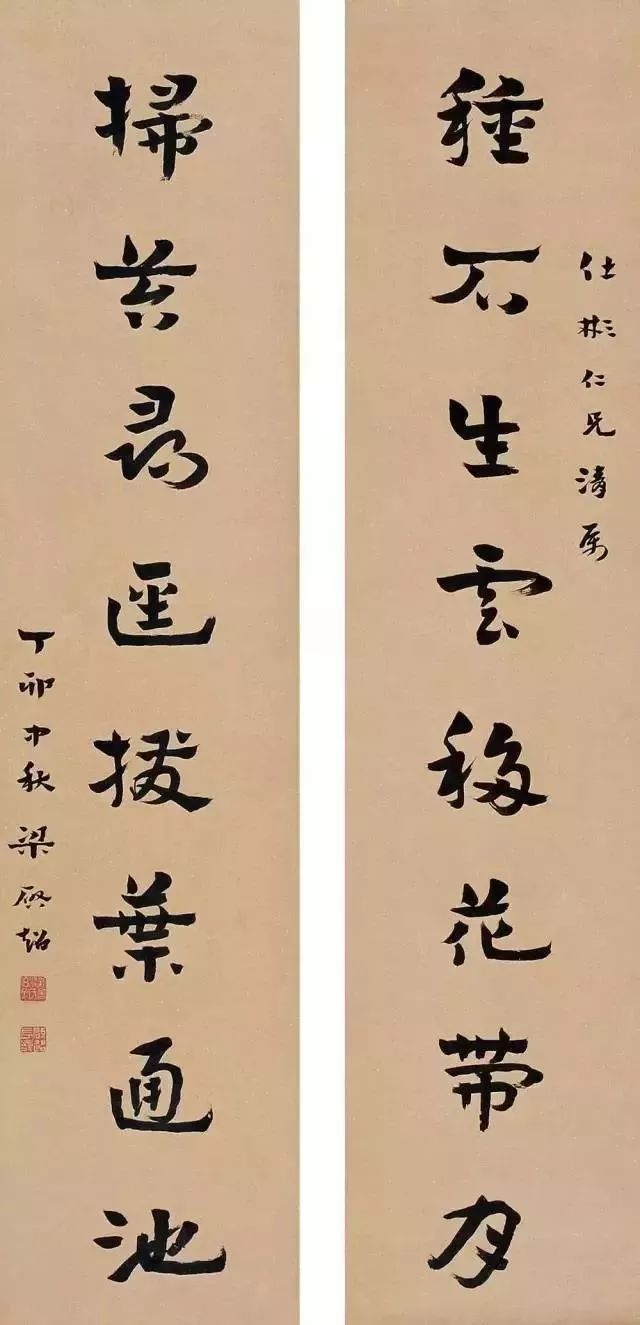 仕彬仁兄清属
種石生雲移花帶月
掃苔尋逕撥葉通池
丁卯中秋梁啓超